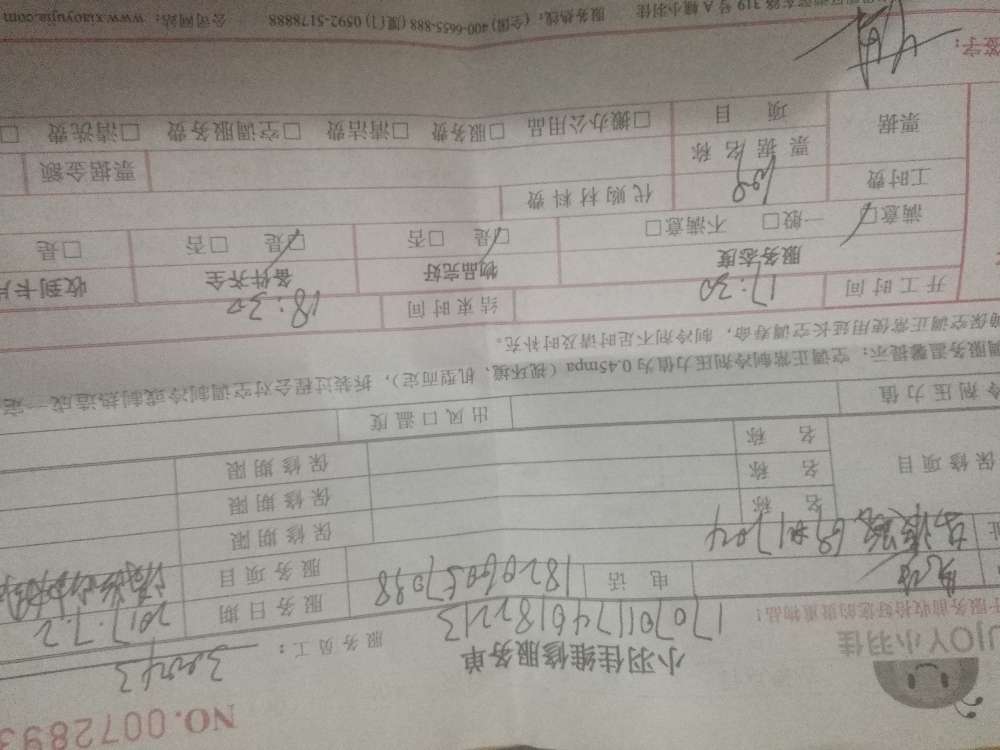 NO.0072893
JOY小羽佳
小羽佳维修服务单
服务员工: 30043
于服务前收拾好您的贵重物品!
1707011746182213
服务日期 2017.7.2
电话 18206057098
服务项目
704
保修项目
名称 保修期限
名称 保修期限
名称 保修期限
冷剂压力值 出风口温度
调服务温馨提示:空调正常制冷剂压力值为0.45mpa(视环境、机型而定),拆装过程会对空调制冷或制热造成一定
确保空调正常使用延长空调寿命,制冷剂不足时请及时补充。
开工时间 17:30 结束时间 18:30
服务态度 物品完好 备件齐全 收到卡片
满意□ 一般□ 不满意□ □是 □否 □是 □否 □是
工时费 100 代购材料费
票据 票据名称 票据金额
项目 □搬办公用品 □服务费 □清洁费 □空调服务费 □清洗费 □
签字:
319号A幢小羽佳 服务热线:(全国)400-6655-888 (厦门) 0592-5178888 公司网站:www.xiaoyujia.com